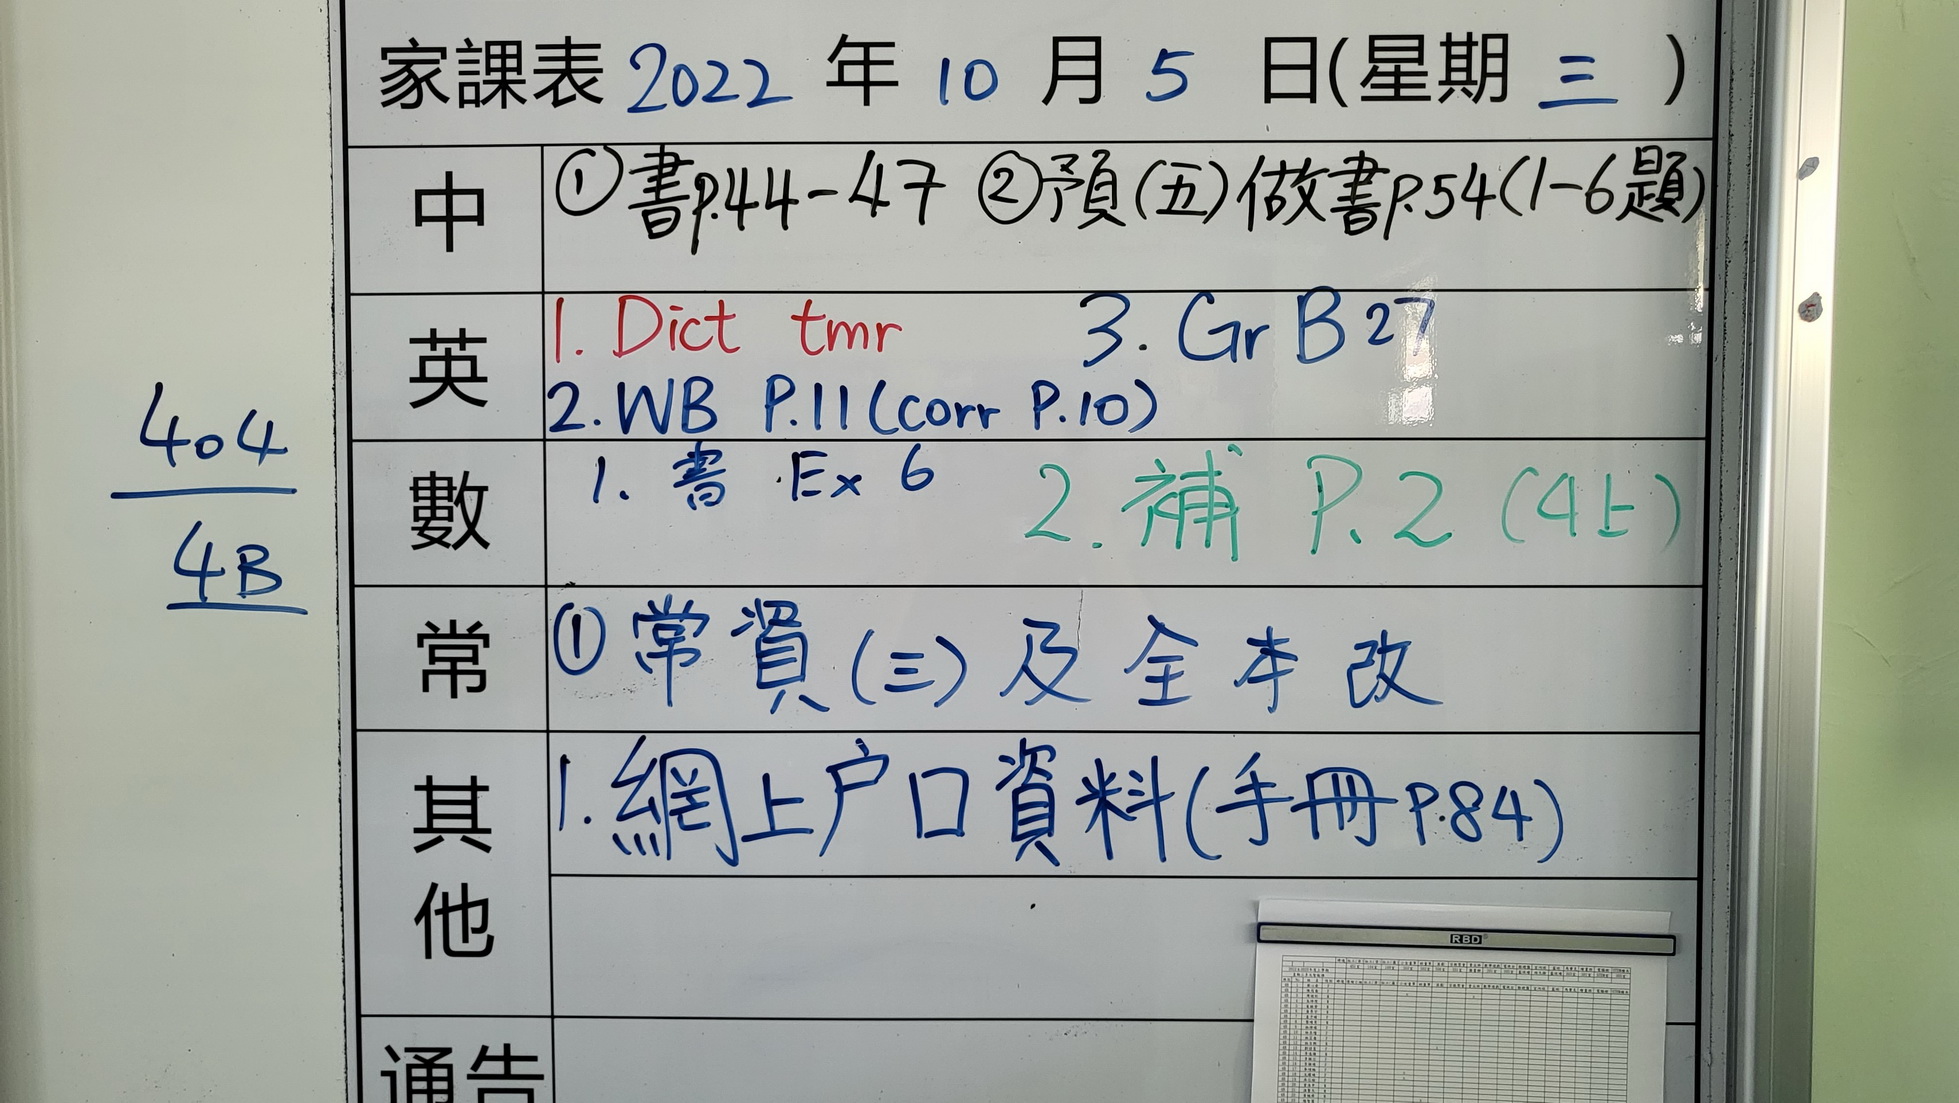 家課表 2022 年 10 月 5 日(星期 三 )
中 ①書p.44-47 ②預(五)做書p.54(1-6題)
英 1. Dict tmr 3. Gr B 27
2. WB P.11 (corr P.10)
404
4B
數 1. 書 Ex 6 2. 補 P.2 (4上)
常 ①常資(三)及全本改
其他 1. 網上户口資料(手冊P.84)
RBD
通告